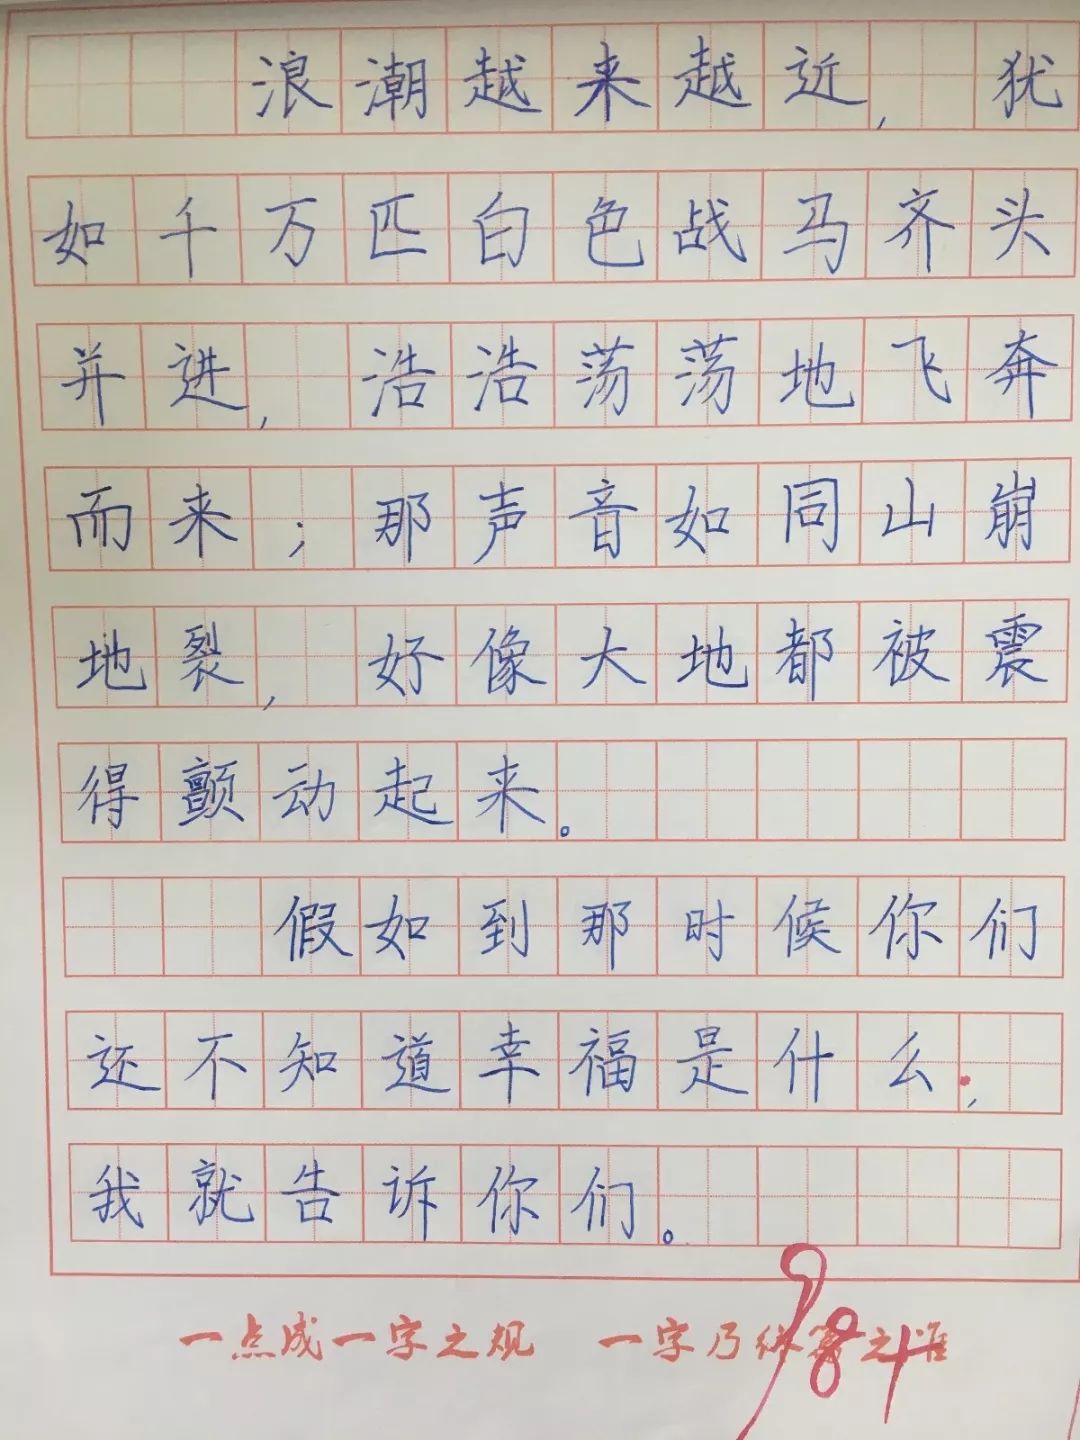 浪潮越来越近,犹
如千万匹白色战马齐头
并进,浩浩荡荡地飞奔
而来;那声音如同山崩
地裂,好像大地都被震
得颤动起来。
假如到那时候你们
还不知道幸福是什么,
我就告诉你们。
一点成一字之规 一字乃终篇之准
98+